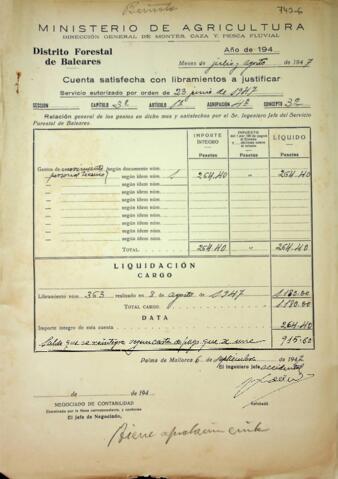 7426
MINISTERIO DE AGRICULTURA
DIRECCIÓN GENERAL DE MONTES, CAZA Y PESCA FLUVIAL
Distrito Forestal
de Baleares
Año de 194
Meses de julio y agosto de 1947
Cuenta satisfecha con libramientos a justificar
Servicio autorizado por orden de 23 junio de 1947
SECCIÓN CAPÍTULO 3º ARTÍCULO AGRUPACIÓN CONCEPTO 3º
Relación general de los gastos en dicho mes y satisfechos por el Sr. Ingeniero Jefe del Servicio
Forestal de Baleares.
IMPORTE ÍNTEGRO
Pesetas
IMPUESTO
Pesetas
LÍQUIDO
Pesetas
Gastos de según documento núm. 1 264.40 " 264.40
personal según idem núm.
según idem núm.
según idem núm.
según idem núm.
según idem núm.
según idem núm.
según idem núm.
TOTAL 264.40 " 264.40
LIQUIDACIÓN
CARGO
Libramiento núm. 353 realizado en 8 de agosto de 1947 1180.00
TOTAL CARGO 1180.00
DATA
Importe íntegro de esta cuenta 264.40
Saldo que se reintegra según carta de pago que se une 915.60
Palma de Mallorca 6 septiembre de 1947
El Ingeniero Jefe accidental
de de 194
NEGOCIADO DE CONTABILIDAD
Examinada por la Mesa correspondiente, y conforme
El Jefe de Negociado,